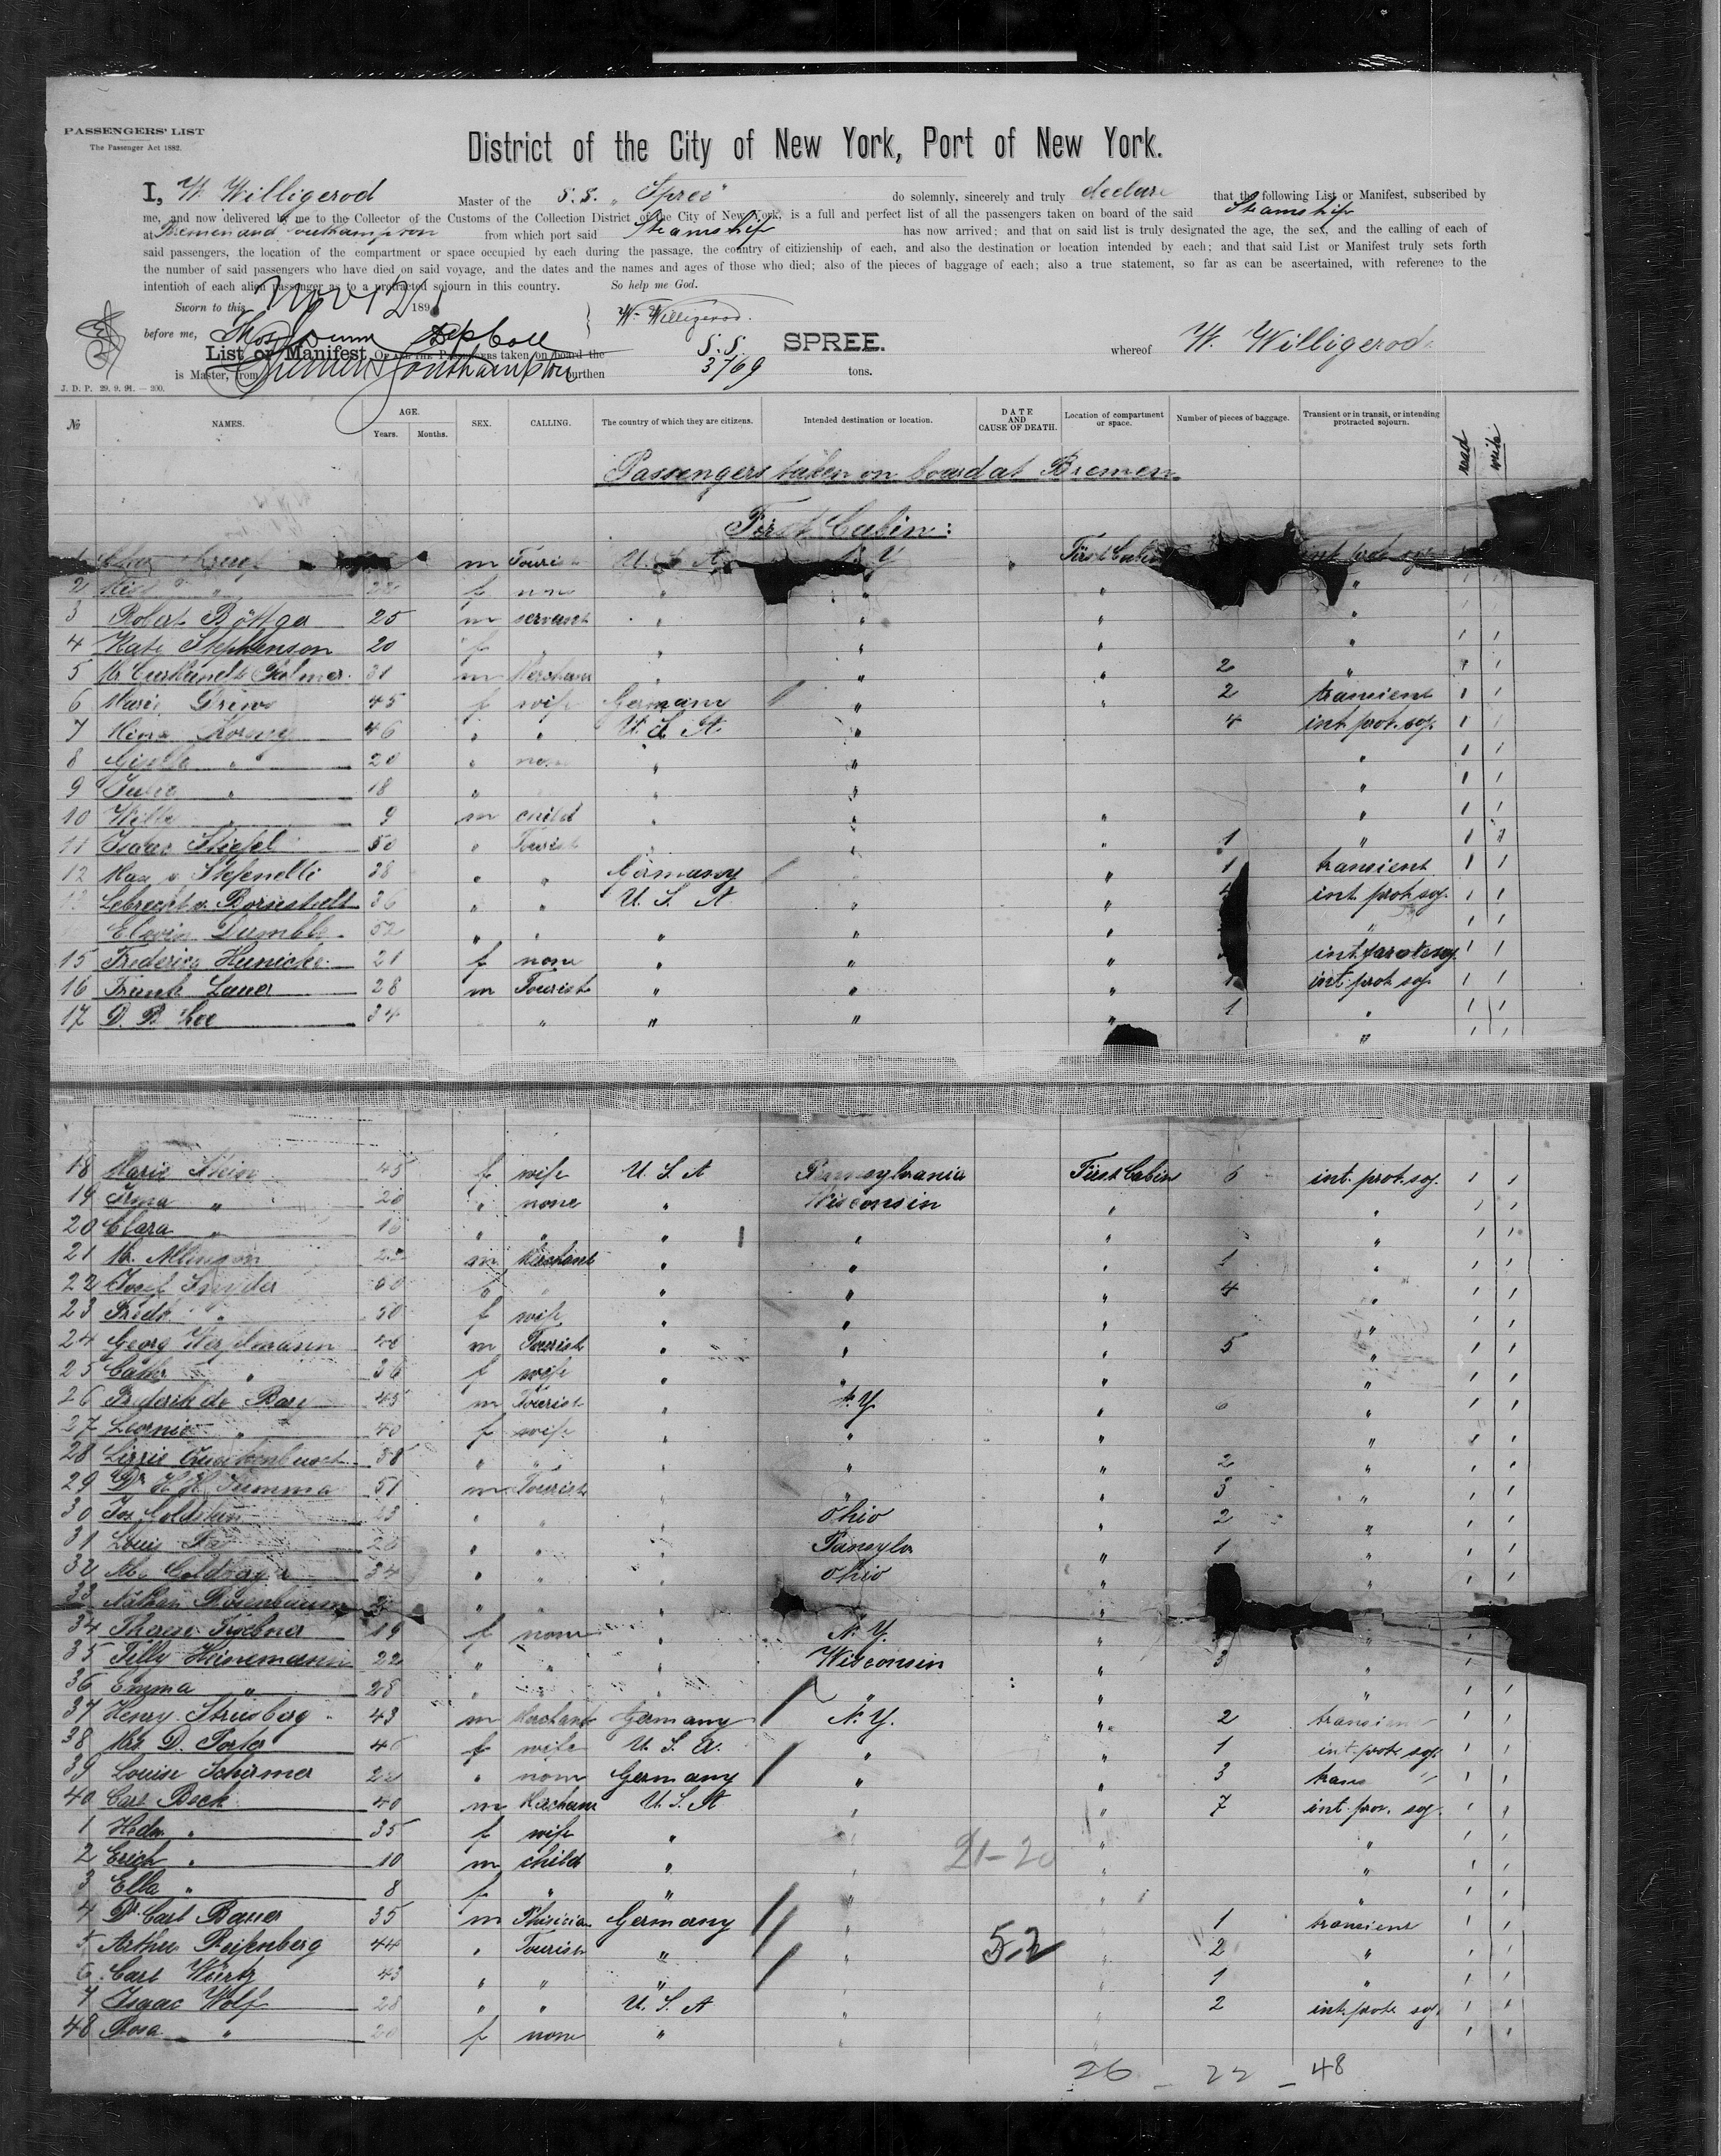 PASSENGERS' LIST
The Passenger Act 1882.
District of the City of New York, Port of New York.
I, W. Willigerod Master of the S.S. „Spree" do solemnly, sincerely and truly declare that the following List or Manifest, subscribed by
me, and now delivered by me to the Collector of the Customs of the Collection District of the City of New York, is a full and perfect list of all the passengers taken on board of the said Steamship
at Bremen and Southampton from which port said Steamship has now arrived; and that on said list is truly designated the age, the sex, and the calling of each of
said passengers, the location of the compartment or space occupied by each during the passage, the country of citizienship of each, and also the destination or location intended by each; and that said List or Manifest truly sets forth
the number of said passengers who have died on said voyage, and the dates and the names and ages of those who died; also of the pieces of baggage of each; also a true statement, so far as can be ascertained, with reference to the
intention of each alien passenger as to a protracted sojourn in this country. So help me God.
Sworn to this Nov 12 1891
W. Willigerod.
before me, Thos Dunn Dep Coll
List or Manifest OF ALL THE PASSENGERS taken on board the S.S. SPREE. whereof W. Willigerod
is Master, from Bremen & Southampton burthen 3769 tons.
J. D. P. 29. 9. 91. — 200.
№ NAMES. AGE. Years. Months. SEX. CALLING. The country of which they are citizens. Intended destination or location. DATE AND CAUSE OF DEATH. Location of compartment or space. Number of pieces of baggage. Transient or in transit, or intending protracted sojourn. read write
Passengers taken on board at Bremen.
First Cabin:
m Tourist U. S. A. N. Y First Cabin int prot soj
2 " f none " " "
3 Robert Böttger 25 m servant " " " "
4 Kate Stephenson 20 f " " " "
5 Palmer 31 m Merchant " " " 2 "
6 Marie 45 f wife Germany " " 2 transient
7 46 " " U. S. A " 4 int. prot. soj.
8 Gisella " 20 " none " " "
9 Julia " 18 " " " "
10 Willy " 9 m child " " " "
11 Isaac Stiefel 50 " Tourist " " " 1 "
12 Max v. Stefenelli 38 " " Germany " 1 transient
Lebrecht v. Bornstedt 36 " " U. S. A " " int. prot soj.
Edwin Dumble 52 " " " " " "
15 Frederica Hunicke 21 f none " " " int. prot soj
16 Frank Lauer 28 m Tourist " " " 1 int. prot soj.
17 D. B. Lee 34 " " " " 1 "
18 Marie Stein 45 f wife U. S. A Pennsylvania First Cabin 6 int. prot. soj.
19 Irma " 20 " none " Wisconsin " "
20 Clara " " " " " " "
21 m Merchant " " " 1 "
22 Josef Snyder 60 " " " " 4 "
23 " 50 f wife " " " "
24 Georg m Tourist " " " 5 "
25 Cath. " 36 f wife " " " "
26 Frederik de Bary 45 m Tourist " N. Y. " "
27 Leonie " 40 f wife " " " "
28 Lizzie 38 " " " " " 2 "
29 Dr. 51 m Tourist " " " 3 "
30 Jos. Goldstein " " " Ohio " 2 "
31 Louis " " " " 1 "
32 34 " " " Ohio " "
33 Nathan Rosenbaum " " " "
34 Therese 19 f none " N. Y. " "
35 Tilly Heinemann 22 " " " Wisconsin " 3 "
36 Emma " 28 " " " " " "
37 Henry Strusberg 43 m Merchant Germany N. Y. " 2 transient
38 Mrs. D. f wife U. S. A. " " 1 int. prot. soj.
39 Louise Schirmer 22 " none Germany " " 3 trans "
40 Carl Beck 40 m Merchant U. S. A " " 7 int. prot. soj.
1 Hedw. " 35 f wife " " " "
2 Erich " 10 m child " " " "
3 Ella " 8 f " " " " "
4 Dr. Carl Bauer 35 m Phisician Germany " " 1 transient
5 Arthur Reifenberg 44 " Tourist " " " 2 "
6 Carl Würtz 43 " " " " " 1 "
7 Isaac Wolf 28 " " U. S. A " " 2 int. prot. soj.
48 Rosa " 20 f none " " "
21-20
52
26 - 22 - 48